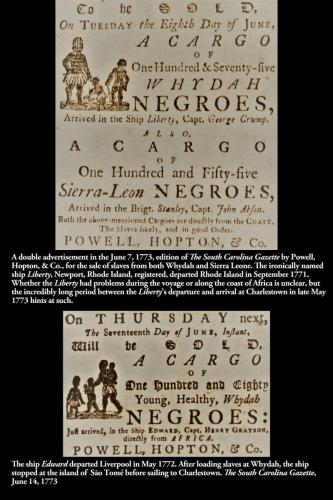 To be SOLD,
On TUESDAY the Eighth Day of JUNE,
A CARGO
OF
One Hundred & Seventy-five
WHYDAH
NEGROES,
Arrived in the Ship Liberty, Capt. George Crump.
ALSO,
A CARGO
OF
One Hundred and Fifty-five
Sierra-Leon NEGROES,
Arrived in the Brigt. Stanley, Capt. John Abson.
Both the above-mentioned Cargoes are directly from the COAST.
The Slaves likely, and in good Order.
POWELL, HOPTON, & Co.
A double advertisement in the June 7, 1773, edition of The South Carolina Gazette by Powell,
Hopton, & Co., for the sale of slaves from both Whydah and Sierra Leone. The ironically named
ship Liberty, Newport, Rhode Island, registered, departed Rhode Island in September 1771.
Whether the Liberty had problems during the voyage or along the coast of Africa is unclear, but
the incredibly long period between the Liberty's departure and arrival at Charlestown in late May
1773 hints at such.
On THURSDAY next,
The Seventeenth Day of JUNE, Instant,
Will be SOLD,
A CARGO
OF
One Hundred and Eighty
Young, Healthy, Whydah
NEGROES:
Just arrived, in the Ship EDWARD, Capt. HENRY GRAYSON,
directly from AFRICA.
POWELL, HOPTON, & Co.
The ship Edward departed Liverpool in May 1772. After loading slaves at Whydah, the ship
stopped at the island of São Tomé before sailing to Charlestown. The South Carolina Gazette,
June 14, 1773